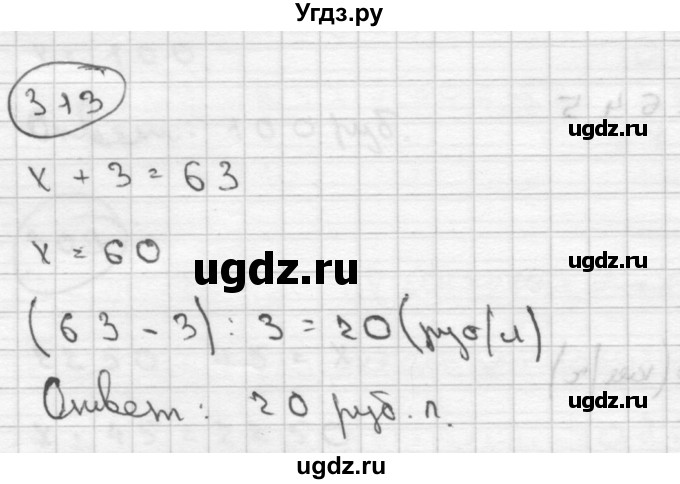 Угдз.ру
313
ugdz.ru
x + 3 = 63
x = 60
ugdz.ru
ugdz.ru
(63 - 3) : 3 = 20 (руб/л)
Ответ: 20 руб. л.
ugdz.ru
ugdz.ru